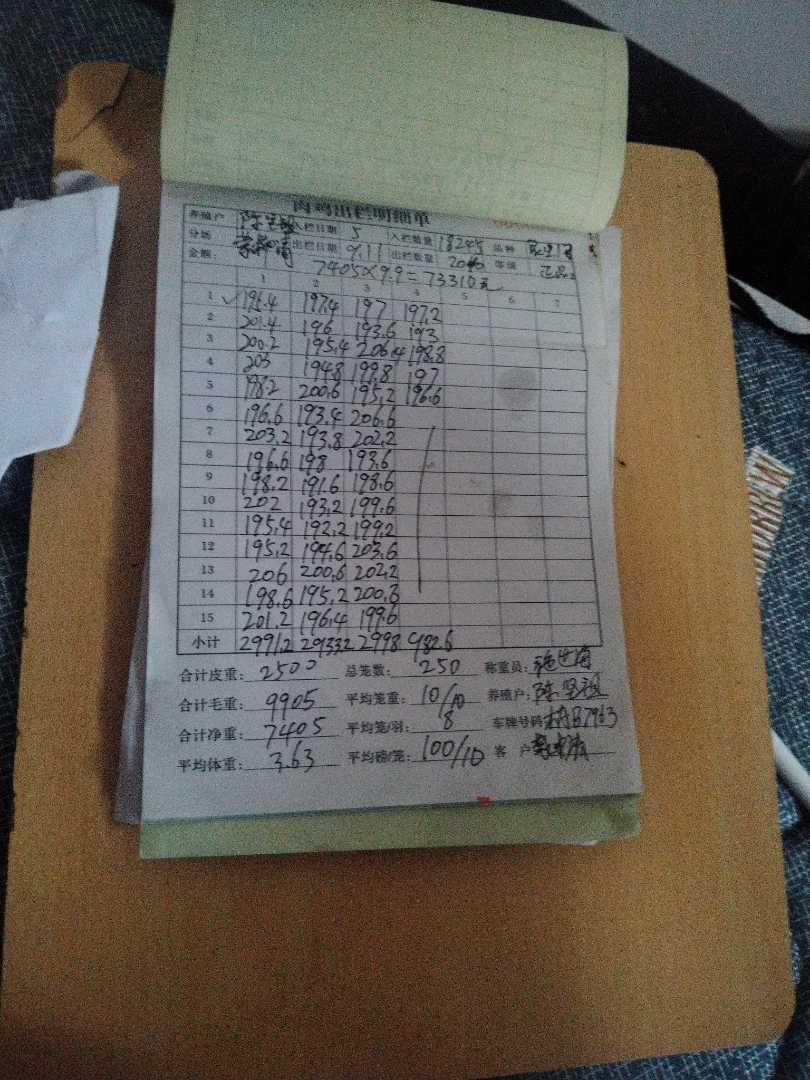 肉鸡出栏明细单
养殖户 陈坚强 入栏日期 5 入栏数量 18245 品种
分场 出栏日期 9.11 出栏数量 2040 等级 正品
金额: 7405×9.9=73310元
1 2 3 4 5 6 7
1 196.4 197.4 197 197.2
2 201.4 196 193.6 193
3 200.2 195.4 206.4 198.8
4 203 194.8 199.8 197
5 198.2 200.6 195.2 196.6
6 196.6 193.4 206.6
7 203.2 193.8 202.2
8 196.6 198 193.6
9 198.2 191.6 198.6
10 202 193.2 199.6
11 195.4 192.2 199.2
12 195.2 194.6 203.6
13 206 200.6 202.2
14 198.6 195.2 200.8
15 201.2 196.4 199.6
小计 2991.2 2933.2 2998 982.6
合计皮重: 2500 总笼数: 250 称重员:
合计毛重: 9905 平均笼重: 10/10 养殖户: 陈坚强
合计净重: 7405 平均笼/羽: 8 车牌号码 B7963
平均体重: 3.63 平均磅/笼: 100/10 客户